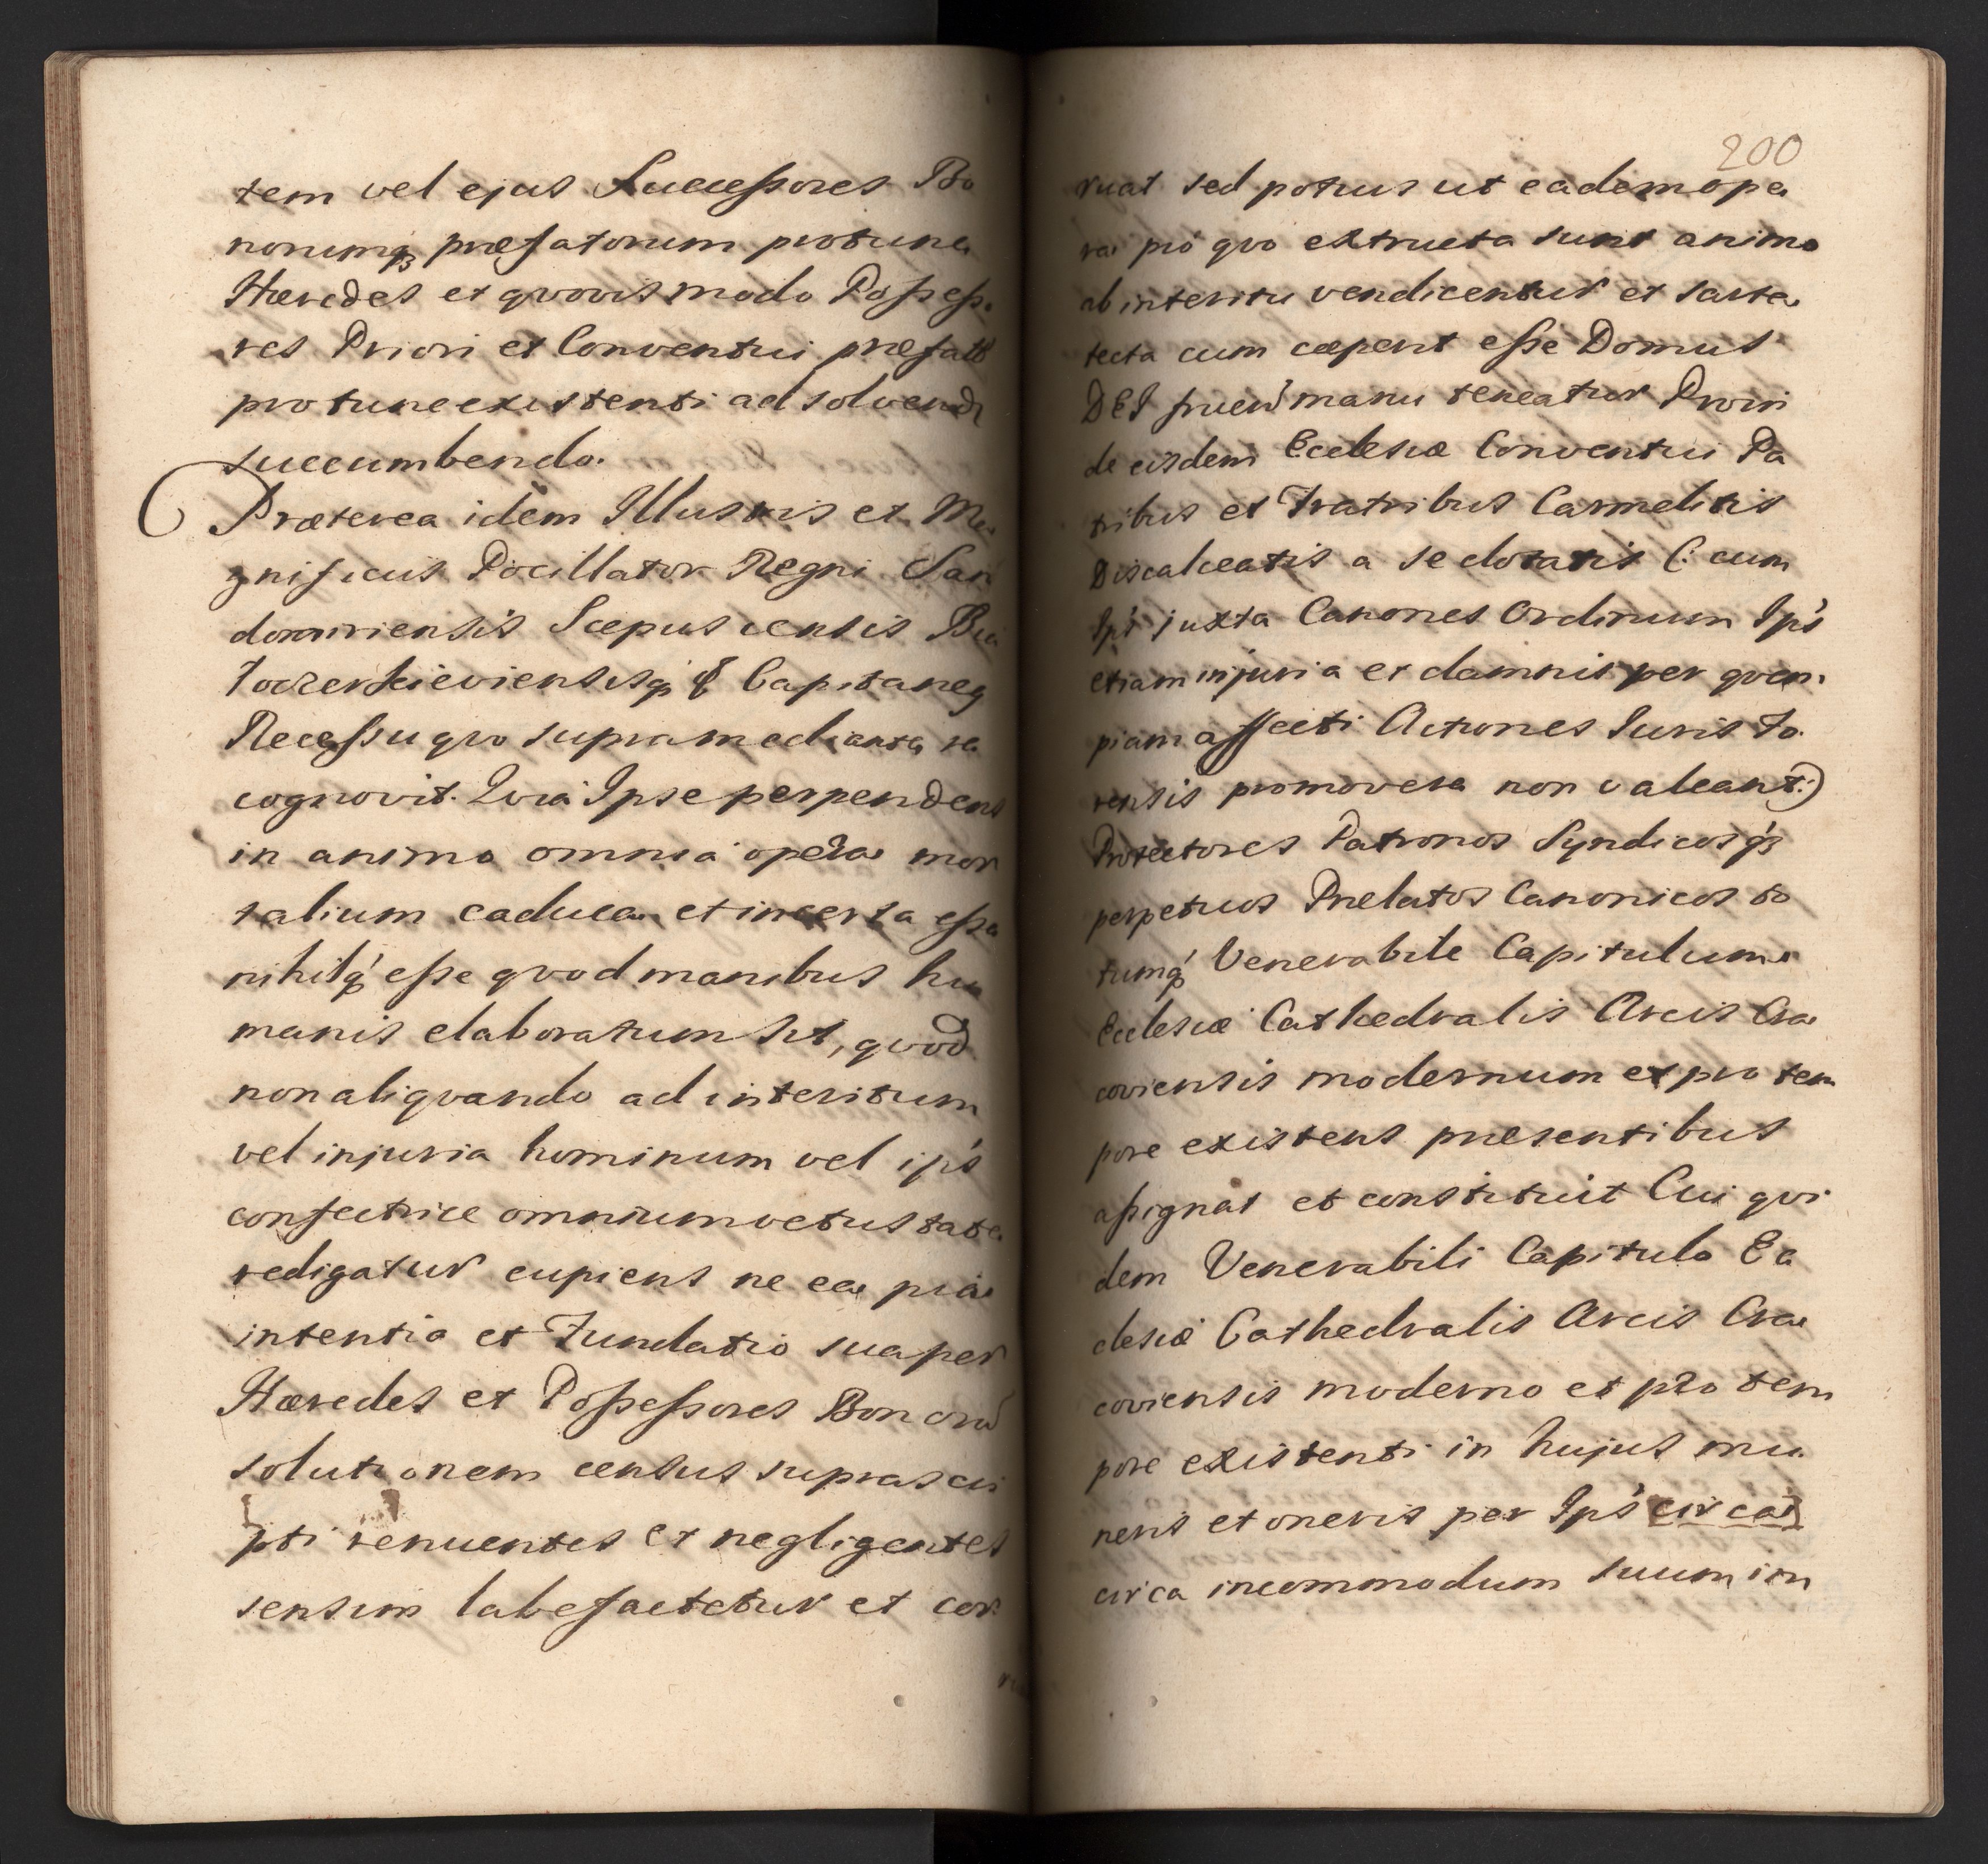 tem vel ejus Successores Bo
norumq; præfatorum protunc
Hæredes et qvovis modo Possesso
res Priori et Conventui præfato
protunc existenti ad solvendū
succumbendo.
Præterea idem Illustris et Ma
gnificus Pocillator Regni San
domiriensis Scepusiensis Bia
Capitaneq
Recessu qvo supra mediante re
cognovit. Qvia Ipse perpendens
in animo omnia opera mor
talium caduca et incerta esse
nihilq; esse qvod manibus hu
manis elaboratum sit, qvod
non aliqvando ad interitum
vel injuria hominum vel ip's
confectrice omnium vetustate
redigatur cupiens ne ea pia
intentio et Fundatio sua per
Hæredes et Possessores Bonorū
solutionem census suprascri
pti renuentes et negligentes
sensim labefactetur et cor
200
ruat sed potius ut eadem ope
ra pro qvo extructa sunt animo
ab interitu vendicentur et sarta
tecta cum cæperit esse Domus
DEI manu teneatur Proin
de eisdem Ecclesiæ Conventui Pa
tribus et Fratribus Carmelitis
Discalceatis a se dotatis (: cum
Ip's juxta Canones Ordinum Ip's
etiam injuria et damnis per qvem
piam affecti Actiones Juris Fo
rensis promovere non valeant:)
Protectores Patronos Syndicosq;
perpetuos Prælatos Canonicos to
tumq; Venerabile Capitulum
Ecclesiæ Cathedralis Arcis Cra
coviensis modernum et pro tem
pore existens præsentibus
assignat et constituit Cui qvi
dem Venerabili Capitulo Ec
clesiæ Cathedralis Arcis Cra
coviensis moderno et pro tem
pore existenti in hujus mu
neris et oneris per Ip's circa
circa incommodum suum im